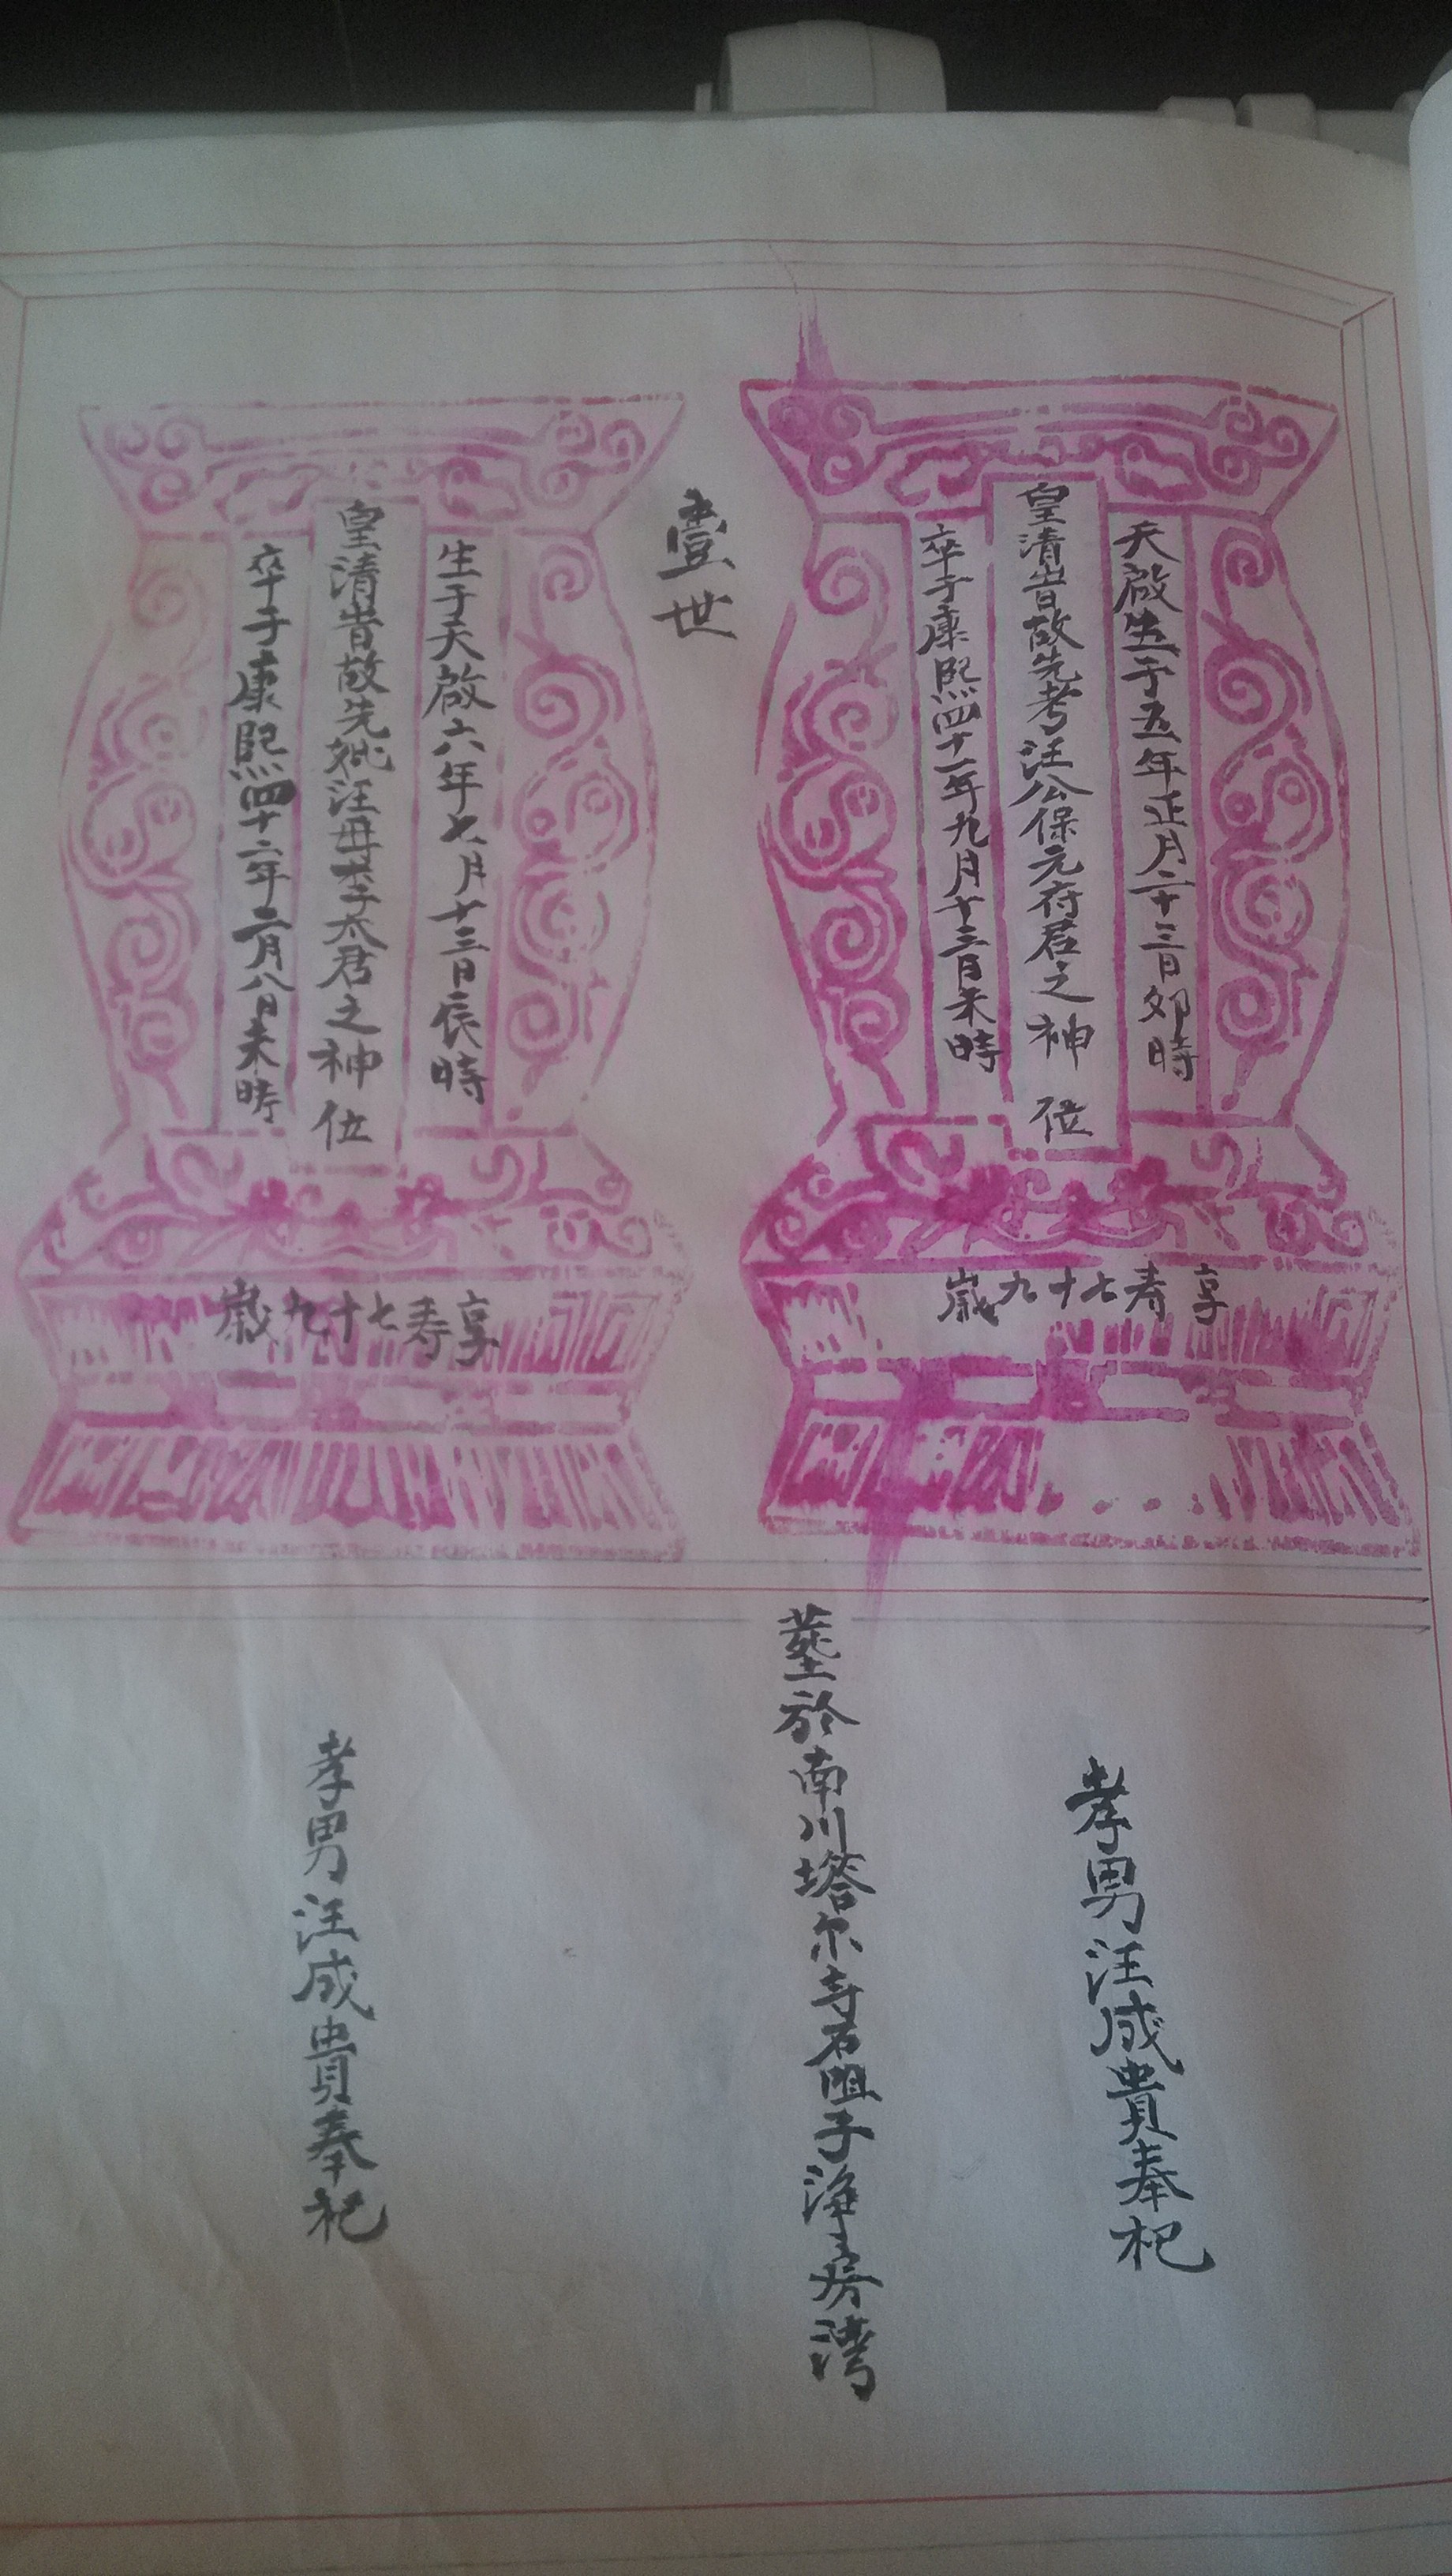 天啟生于五年正月二十三日夘時
皇清昔故先考汪公保元府君之神位
卒于康熙四十一年九月十三日未時
享寿七十九歲
壹世
生于天啟六年七月十三日辰時
皇清昔故先妣汪母李太君之神位
卒于康熙四十六年二月八日未時
享寿七十九歲
孝男汪成貴奉祀
塟於南川塔尔寺石咀子净房湾
孝男汪成貴奉祀